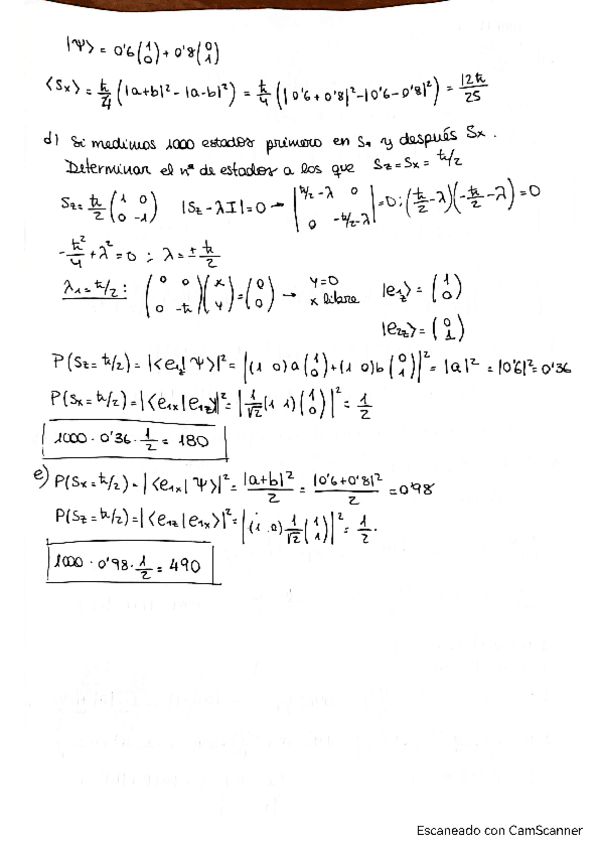 |Ψ⟩ = 0'6 (1 0) + 0'8 (0 1)
⟨Sx⟩ = ħ/4 (|a+b|² - |a-b|²) = ħ/4 (|0'6 + 0'8|² - |0'6 - 0'8|²) = 12ħ/25
d) Si medimos 1000 estados primero en Sz y después Sx.
Determinar el nº de estados a los que Sz = Sx = ħ/2
Sz = ħ/2 (1 0 0 -1) |Sz - λI| = 0 → |ħ/2 - λ 0 0 -ħ/2 - λ| = 0; (ħ/2 - λ)(-ħ/2 - λ) = 0
-ħ²/4 + λ² = 0 ; λ = ± ħ/2
λ1 = ħ/2 : (0 0 0 -ħ)(x y) = (0 0) → y=0 x libre |e1z⟩ = (1 0)
|e2z⟩ = (0 1)
P(Sz = ħ/2) = |⟨e1z|Ψ⟩|² = |(1 0) a (1 0) + (1 0) b (0 1)|² = |a|² = |0'6|² = 0'36
P(Sx = ħ/2) = |⟨e1x|e1z⟩|² = |1/√2 (1 1)(1 0)|² = 1/2
1000 · 0'36 · 1/2 = 180
e) P(Sx = ħ/2) = |⟨e1x|Ψ⟩|² = |a+b|²/2 = |0'6 + 0'8|²/2 = 0'98
P(Sz = ħ/2) = |⟨e1z|e1x⟩|² = |(1 0) 1/√2 (1 1)|² = 1/2.
1000 · 0'98 · 1/2 = 490
Escaneado con CamScanner